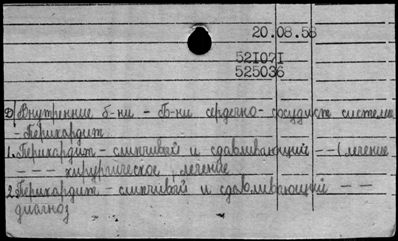 20.08.58
521071
525036
D/ Внутренние б-ни - Б-ни сердечно-сосудист системы
- Перикардит
1. Перикардит - слипчивый и сдавливающий -- (лечение
- - - хирургическое лечение
2. Перикардит - слипчивый и сдавливающий - -
диагноз